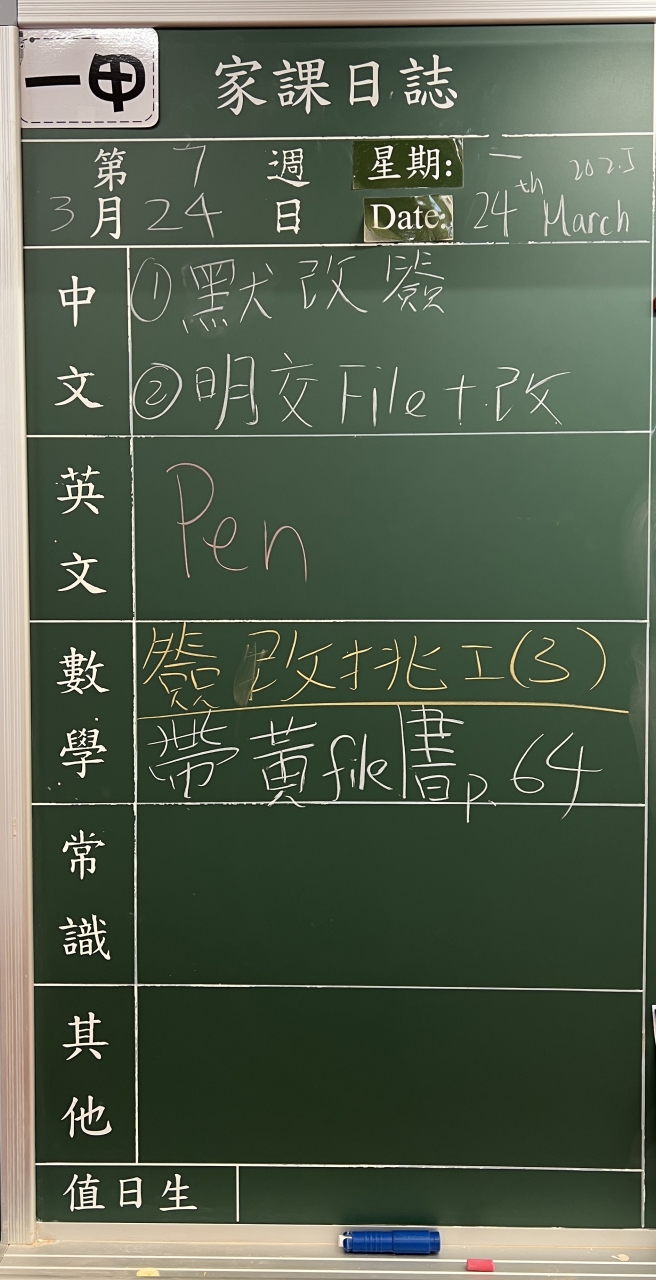 一甲 家課日誌
第 7 週 星期: 一 2025
3月24日 Date: 24th March
中文 ①默改簽
②明交File+改
英文 Pen
數學 簽改挑工(3)
帶黃file|書p.64
常識
其他
值日生